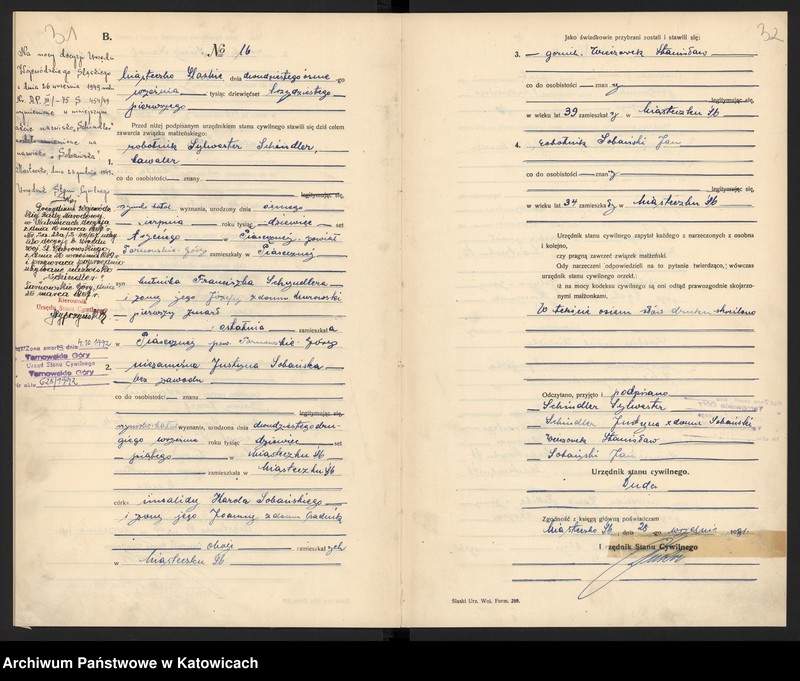 31
B.
№ 16
Na mocy decyzji Urzędu
Wojewódzkiego Śląskiego
z dnia 26 września 1949 roku
zmienione na
nazwisko „Sobańska"
Urzędnik Stanu Cywilnego
Prezydium Wojewódz-
kiej Rady Narodowej
w Katowicach decyzją
z dnia 16 marca 1967 r.
„Schindler"
Tarnowskie Góry, dnia
Kierownik
Urzędu Stanu Cywilnego
Zona zmarła dnia 4.10.1992
Tarnowskie Góry
Urząd Stanu Cywilnego
Tarnowskie Góry
Nr aktu 626/1992
Miasteczko Śląskie dnia dwudziestego ósme-go
września tysiąc dziewięćset trzydziestego
pierwszego
Przed niżej podpisanym urzędnikiem stanu cywilnego stawili się dziś celem
zawarcia związku małżeńskiego:
1. robotnik Sylwester Schindler,
kawaler
co do osobistości znany
legitymując się,
rzymsko katol. wyznania, urodzony dnia ósmego
sierpnia roku tysiąc dziewięć set
trzeciego w Piasecznej powiat
Tarnowskie-Góry zamieszkały w Piasecznej
syn hutnika Franciszka Schyndlera
i żony jego Józefy z domu Murowski
pierwszy zmarł
ostatnia zamieszkała
w Piasecznej pow. Tarnowskie-Góry
2. niezamężna Justyna Sobańska,
bez zawodu
co do osobistości znana
legitymując się,
rzymsko-katol wyznania, urodzona dnia dwudziestego dru-
giego września roku tysiąc dziewięć set
piątego w Miasteczku Śl.
zamieszkała w Miasteczku Śl.
córka inwalidy Karola Sobańskiego
i żony jego Joanny z domu
oboje zamieszkałych
w Miasteczku Śl.
32
Jako świadkowie przybrani zostali i stawili się:
3. górnik Stanisław
co do osobistości znany
legitymując się
w wieku lat 39 zamieszkały w Miasteczku Śl.
4. robotnik Sobański Jan
co do osobistości znany
legitymując się
w wieku lat 34 zamieszkały w Miasteczku Śl.
Urzędnik stanu cywilnego zapytał każdego z narzeczonych z osobna
i kolejno,
czy pragną zawrzeć związek małżeński.
Gdy narzeczeni odpowiedzieli na to pytanie twierdząco, wówczas
urzędnik stanu cywilnego orzekł:
iż na mocy kodeksu cywilnego są oni odtąd prawozgodnie skojarzo-
nymi małżonkami.
W tekście osiem słów drukiem skreślono
Odczytano, przyjęto i podpisano
Schindler Sylwester
Schindler Justyna z domu Sobański
Stanisław
Sobański Jan
Urzędnik stanu cywilnego.
Duda
Zgodność z księgą główną poświadczam
Miasteczko Śl., dnia 28 go września 1931.
Urzędnik Stanu Cywilnego
Śląski Urz. Woj. Form. 269.
Archiwum Państwowe w Katowicach